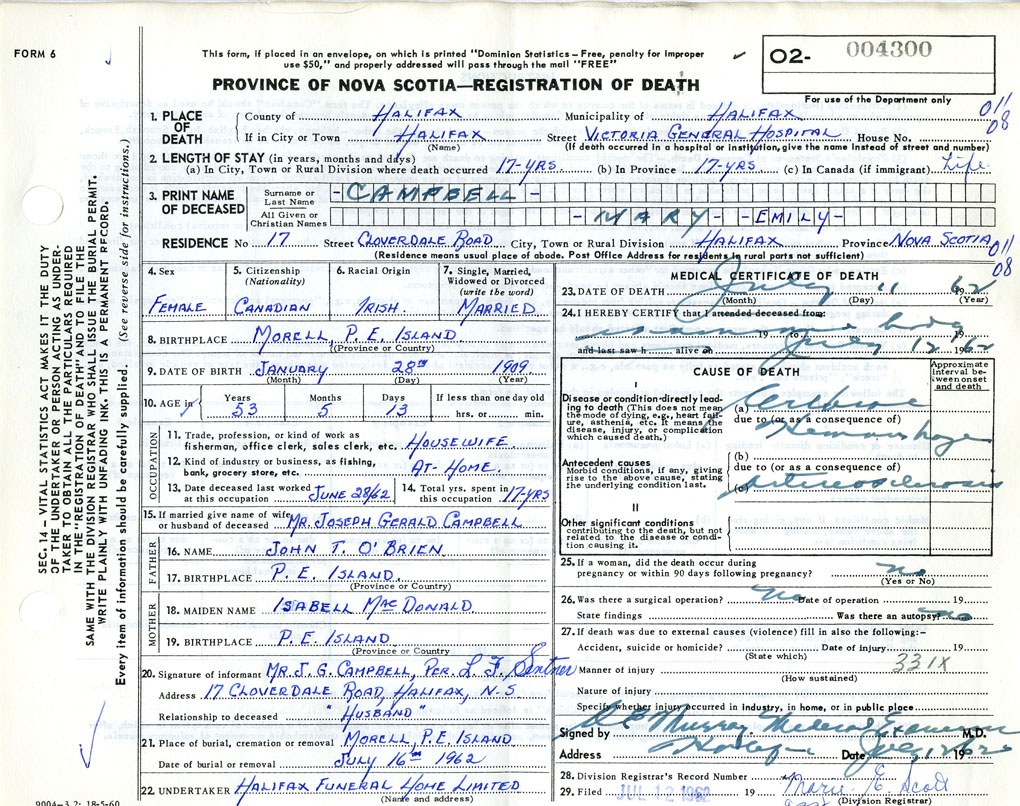 FORM 6
This form, if placed in an envelope, on which is printed "Dominion Statistics – Free, penalty for improper
use $50," and properly addressed will pass through the mail "FREE"
O2- 004300
PROVINCE OF NOVA SCOTIA—REGISTRATION OF DEATH
For use of the Department only
011
08
1. PLACE OF DEATH
County of HALIFAX Municipality of HALIFAX
If in City or Town HALIFAX Street VICTORIA GENERAL HOSPITAL House No.
(Name) (If death occurred in a hospital or institution, give the name instead of street and number)
2. LENGTH OF STAY (in years, months and days)
(a) In City, Town or Rural Division where death occurred 17-YRS. (b) In Province 17-YRS. (c) In Canada (if immigrant) Life.
3. PRINT NAME OF DECEASED
Surname or Last Name -CAMPBELL-
All Given or Christian Names -MARY- -EMILY-
RESIDENCE No 17 Street CLOVERDALE ROAD City, Town or Rural Division HALIFAX Province NOVA SCOTIA
(Residence means usual place of abode. Post Office Address for residents in rural parts not sufficient)
011
08
4. Sex
FEMALE
5. Citizenship (Nationality)
CANADIAN
6. Racial Origin
IRISH.
7. Single, Married, Widowed or Divorced (write the word)
MARRIED
8. BIRTHPLACE MORELL, P. E. ISLAND
(Province or Country)
9. DATE OF BIRTH JANUARY 28th 1909
(Month) (Day) (Year)
10. AGE in Years Months Days If less than one day old
53 5 13 hrs. or min.
OCCUPATION
11. Trade, profession, or kind of work as
fisherman, office clerk, sales clerk, etc. HOUSEWIFE
12. Kind of industry or business, as fishing,
bank, grocery store, etc. AT-HOME.
13. Date deceased last worked at this occupation JUNE 28/62
14. Total yrs. spent in this occupation 17-YRS
15. If married give name of wife
or husband of deceased MR. JOSEPH GERALD CAMPBELL
FATHER
16. NAME JOHN T. O'BRIEN
17. BIRTHPLACE P. E. ISLAND.
(Province or Country)
MOTHER
18. MAIDEN NAME ISABELL MacDONALD
19. BIRTHPLACE P. E. ISLAND
(Province or Country)
20. Signature of informant MR. J. G. CAMPBELL, PER. L. F. Sentner
Address 17 CLOVERDALE ROAD, HALIFAX, N-S
Relationship to deceased "HUSBAND"
21. Place of burial, cremation or removal MORELL P.E. ISLAND
Date of burial or removal JULY 16th 1962
22. UNDERTAKER HALIFAX FUNERAL HOME LIMITED
(Name and address)
9004-3.2: 18-5-60
MEDICAL CERTIFICATE OF DEATH
23. DATE OF DEATH July 11 1962
(Month) (Day) (Year)
24. I HEREBY CERTIFY that I attended deceased from:
body
19 19
and last saw h alive on July 12 1962
CAUSE OF DEATH
Approximate interval between onset and death
I
Disease or condition directly leading to death (This does not mean the mode of dying, e.g., heart failure, asthenia, etc. It means the disease, injury, or complication which caused death.)
(a) Cerebral
due to (or as a consequence of)
Hemorrhage
Antecedent causes
Morbid conditions, if any, giving rise to the above cause, stating the underlying condition last.
(b)
due to (or as a consequence of)
(c) Arteriosclerosis
II
Other significant conditions
contributing to the death, but not related to the disease or condition causing it.
25. If a woman, did the death occur during
pregnancy or within 90 days following pregnancy? no
(Yes or No)
26. Was there a surgical operation? no Date of operation 19
State findings Was there an autopsy? no
27. If death was due to external causes (violence) fill in also the following:–
Accident, suicide or homicide? Date of injury 19
(State which)
Manner of injury 331X
(How sustained)
Nature of injury
Specify whether injury occurred in industry, in home, or in public place
Signed by Murray Medical Examiner M.D.
Address Halifax Date July 12 1962
28. Division Registrar's Record Number
29. Filed JUL 12 1962 19 Marie E. Scott
(Division Registrar)
SEC. 14 – VITAL STATISTICS ACT MAKES IT THE DUTY
OF THE UNDERTAKER OR PERSON ACTING AS UNDER-
TAKER TO OBTAIN ALL THE PARTICULARS REQUIRED
IN THE "REGISTRATION OF DEATH" AND TO FILE THE
SAME WITH THE DIVISION REGISTRAR WHO SHALL ISSUE THE BURIAL PERMIT.
WRITE PLAINLY WITH UNFADING INK. THIS IS A PERMANENT RECORD.
Every item of information should be carefully supplied. (See reverse side for instructions.)